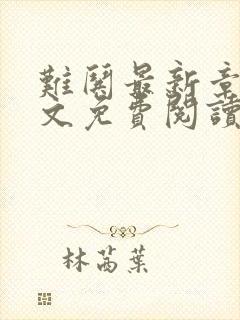 難閱最新章
文免費閱讀
林芮葉